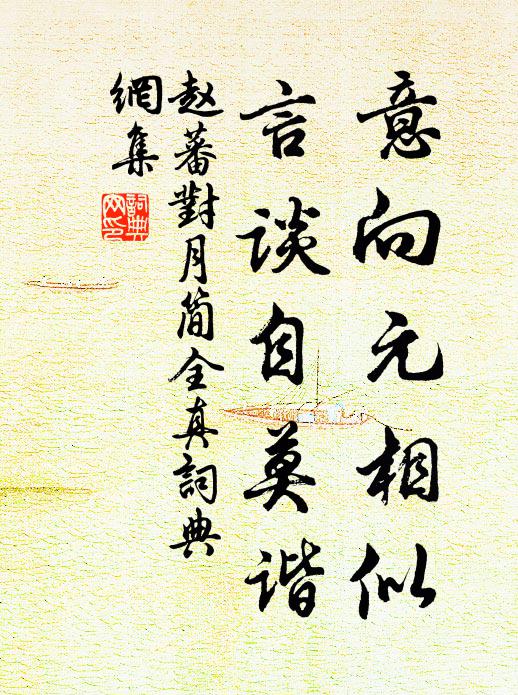 意向元相似
言谈自莫谐
赵蕃對月简全真詞典
網集
詞典
网印